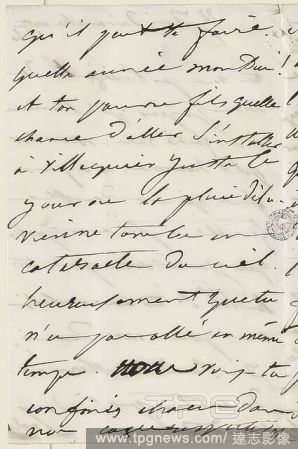 qu'il peut te faire
quelle année mon Dieu !
et ton pauvre fils quelle
chance d'aller s'installer
à Villequier juste le
jour où la pluie dilu-
vienne tombe en
cataracte du ciel.
heureusement que tu
n'a pas allé en même
temps. nous
confinés chacun dans
nos
TPG
www.tpgnews.com/達志影像